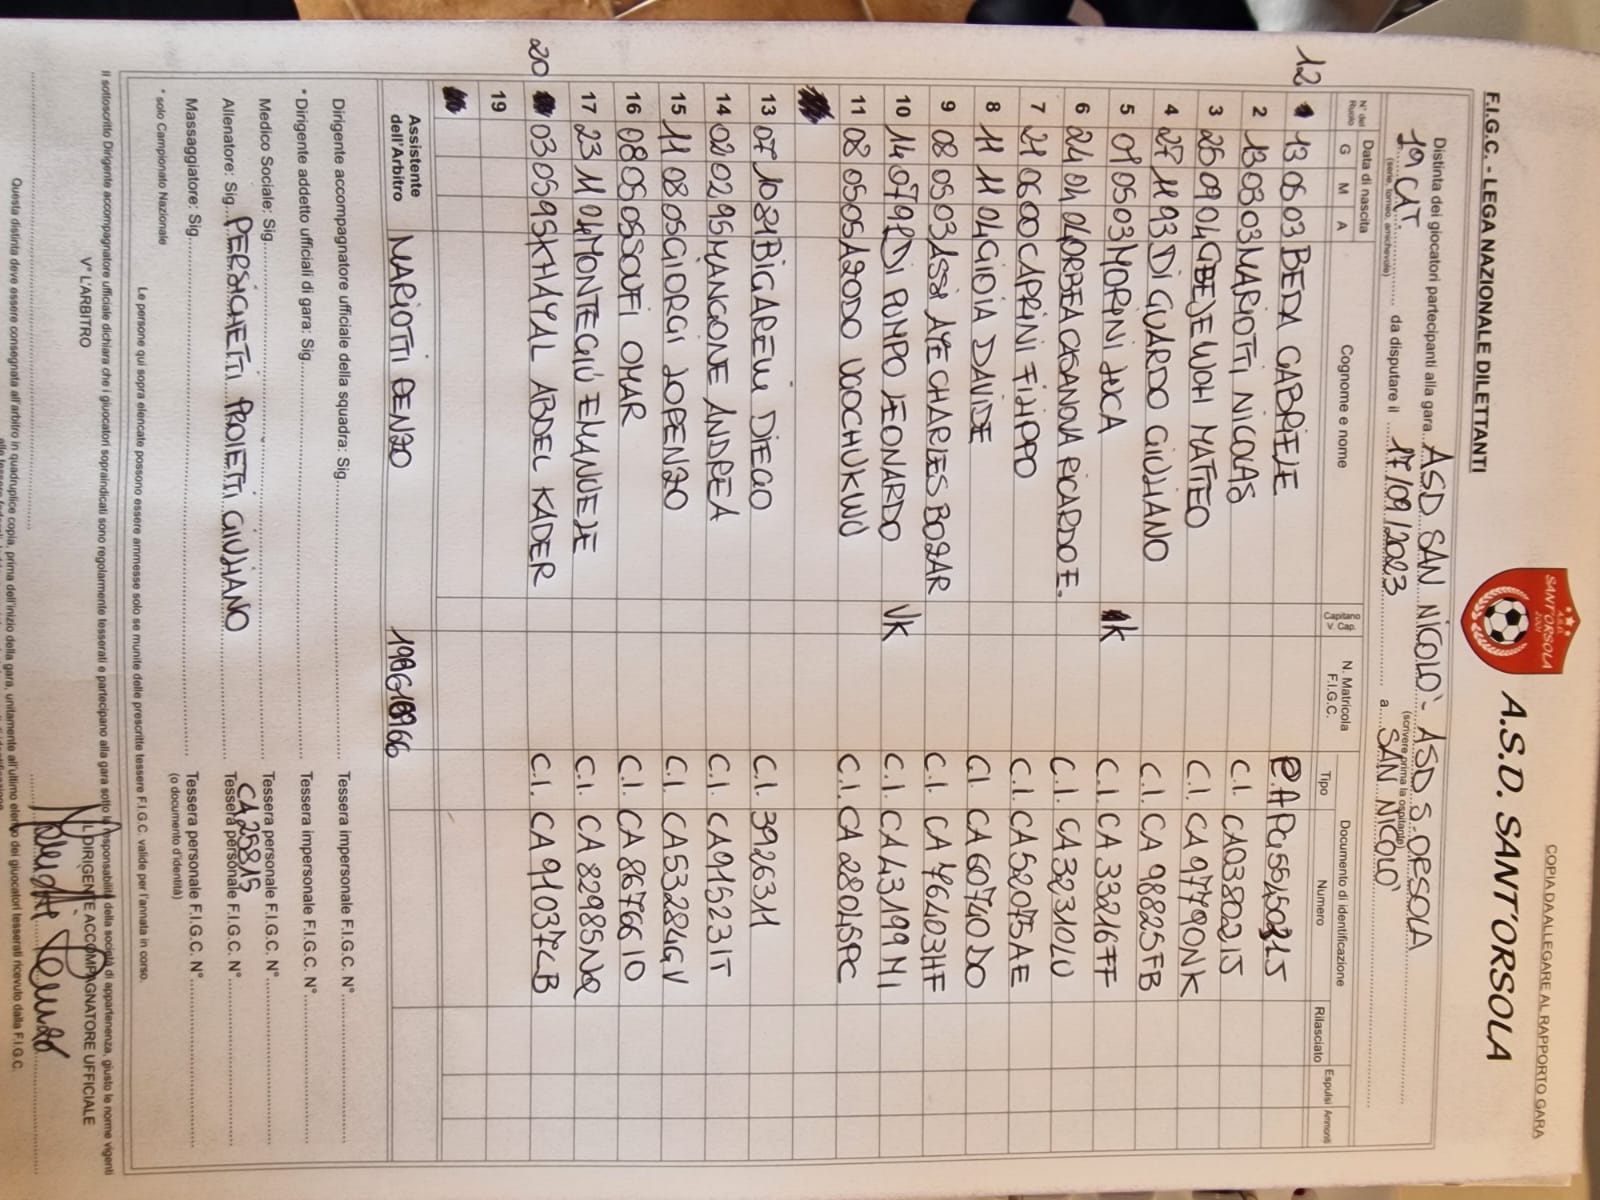 COPIA DA ALLEGARE AL RAPPORTO GARA
A.S.D. SANT'ORSOLA 2001
A.S.D. SANT'ORSOLA
F.I.G.C. - LEGA NAZIONALE DILETTANTI
Distinta dei giocatori partecipanti alla gara ASD SAN NICOLO' - ASD S. ORSOLA
(scrivere prima la ospitante)
1° CAT. da disputare il 17/09/2023 a SAN NICOLO'
(serie, torneo, amichevole)
N° del Ruolo Data di nascita G M A Cognome e nome Capitano V. Cap. N. Matricola F.I.G.C. Documento di identificazione Tipo Numero Rilasciato Espulsi Ammoniti
12 13 06 03 BEDA GABRIELE
2 13 03 03 MARIOTTI NICOLAS C.I. CA03802IJ
3 25 09 04 MATTEO C.I. CA97790NK
4 27 11 93 DI GUARDO GIULIANO C.I. CA98825FB
5 01 05 03 MORINI LUCA K C.I. CA33216FF
6 24 01 04 ORBEA CASANOVA RICARDO E. C.I. CA32310LU
7 21 06 00 CAPRINI FILIPPO C.I. CA52075AE
8 11 11 04 GIOIA DAVIDE C.I. CA60740DO
9 08 05 03 ASSI AYE CHARLES BOZAR C.I. CA76403HF
10 14 07 92 DI POMPO LEONARDO VK C.I. CA43199MI
11 08 05 05 AZODO UDOCHUKWU C.I. CA28045PC
13 07 10 81 BIGARELLI DIEGO C.I. 3926311
14 02 02 95 MANGONE ANDREA C.I. CA91523IT
15 11 08 05 GIORGI LORENZO C.I. CA53284GV
16 08 05 05 SOUFI OMAR C.I. CA86766IO
17 23 11 04 MONTEGIÙ EMANUELE C.I. CA82985NQ
20 03 05 95 KHAYAL ABDEL KADER C.I. CA91037LB
19
Assistente dell'Arbitro MARIOTTI RENZO
Dirigente accompagnatore ufficiale della squadra: Sig. Tessera impersonale F.I.G.C. N°
* Dirigente addetto ufficiali di gara: Sig. Tessera impersonale F.I.G.C. N°
Medico Sociale: Sig. Tessera personale F.I.G.C. N°
Allenatore: Sig. PERSICHETTI PROIETTI GIULIANO Tessera personale F.I.G.C. N° CA25815
Massaggiatore: Sig. Tessera personale F.I.G.C. N°
* solo Campionato Nazionale (o documento d'identità)
Le persone qui sopra elencate possono essere ammesse solo se munite delle prescritte tessere F.I.G.C. valide per l'annata in corso.
Il sottoscritto Dirigente accompagnatore ufficiale dichiara che i giuocatori sopraindicati sono regolarmente tesserati e partecipano alla gara sotto la responsabilità della società di appartenenza, giusto le norme vigenti
V° L'ARBITRO IL DIRIGENTE ACCOMPAGNATORE UFFICIALE
Questa distinta deve essere consegnata all'arbitro in quadruplice copia, prima dell'inizio della gara, unitamente all'ultimo elenco dei giuocatori tesserati ricevuto dalla F.I.G.C.